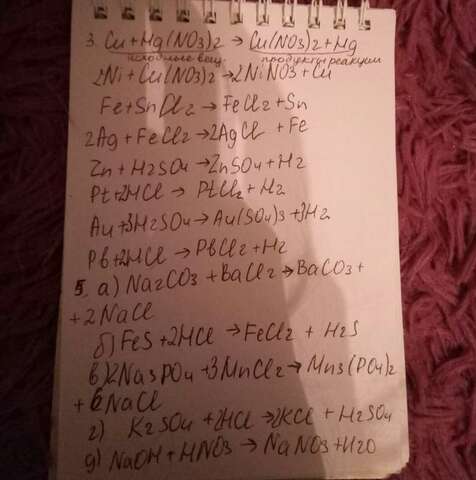 3. Cu + Hg(NO3)2 → Cu(NO3)2 + Hg
исходные вещ. продукты реакции
2Ni + Cu(NO3)2 → 2NiNO3 + Cu
Fe + SnCl2 → FeCl2 + Sn
2Ag + FeCl2 → 2AgCl + Fe
Zn + H2SO4 → ZnSO4 + H2
Pt + 2HCl → PtCl2 + H2
Au + 3H2SO4 → Au(SO4)3 + 3H2
Pb + 2HCl → PbCl2 + H2
5. а) Na2CO3 + BaCl2 → BaCO3 +
+ 2NaCl
б) FeS + 2HCl → FeCl2 + H2S
в) 2Na3PO4 + 3MnCl2 → Mn3(PO4)2
+ 6NaCl
г) K2SO4 + 2HCl → 2KCl + H2SO4
д) NaOH + HNO3 → NaNO3 + H2O